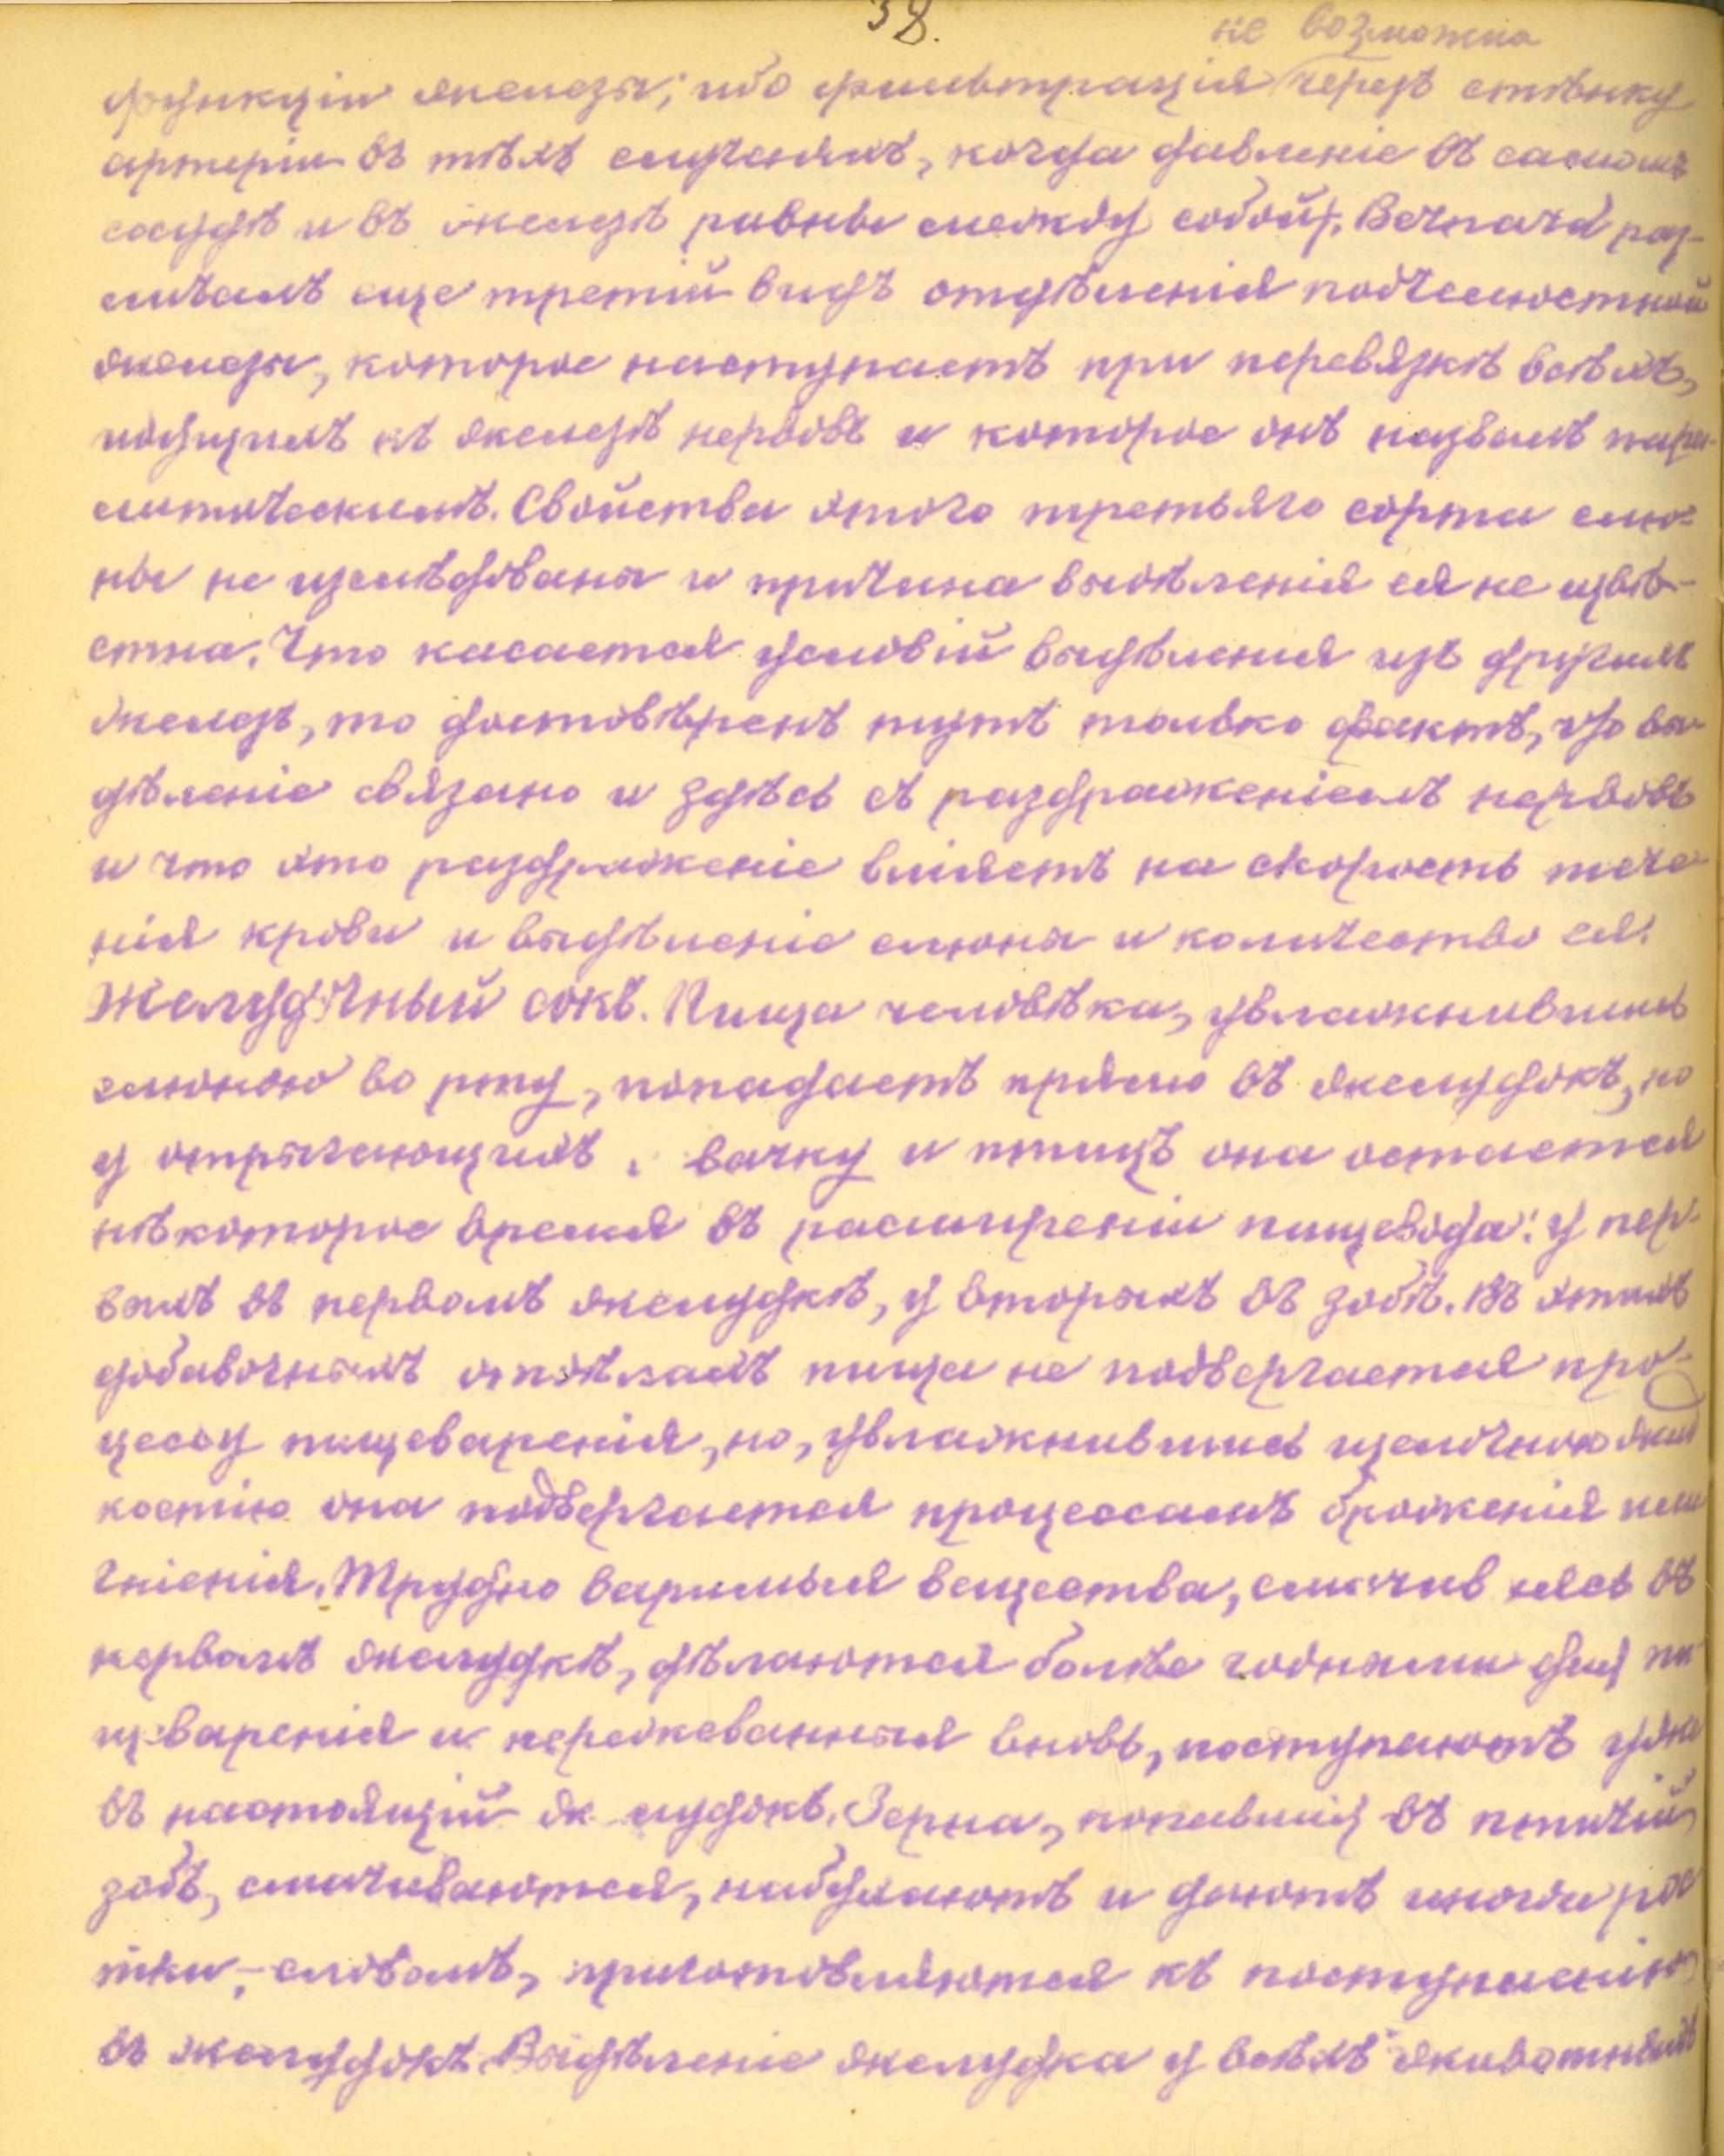 38.
не возможна
функціи железы; ибо фильтрація черезъ стѣнку
артеріи въ тѣхъ случаяхъ, когда давленіе въ самомъ
сосудѣ и въ железѣ равны между собой. Bernard раз-
личалъ еще третій видъ отдѣленія подчелюстной
железы, которое наступаетъ при перевязкѣ всѣхъ,
идущихъ къ железѣ нервовъ и которое онъ назвалъ пара-
литическимъ. Свойства этого третьяго сорта слю-
ны не изслѣдованы и причина выдѣленія ея не извѣ-
стна. Что касается условій выдѣленія изъ другихъ
железъ, то достовѣренъ только фактъ, что вы-
дѣленіе связано и здѣсь съ раздраженіемъ нервовъ
и что это раздраженіе вліяетъ на скорость тече-
нія крови и выдѣленіе слюны и количество ея.
Желудочный сокъ. Пища человѣка, увлажнившись
слюною во рту, попадаетъ прямо въ желудокъ, но
у отрыгающихъ жвачку и птицъ она остается
нѣкоторое время въ расширеніи пищевода: у пер-
выхъ въ первомъ желудкѣ, у вторыхъ въ зобѣ. Въ этихъ
добавочныхъ отдѣлахъ пища не подвергается про-
цессу пищеваренія, но, увлажнившись щелочною жид
костію она подвергается процессамъ броженія или
гніенія. Трудно варимыя вещества, смягчившись въ
первомъ желудкѣ, дѣлаются болѣе годными для пи
щеваренія и пережеванныя вновь, поступаютъ уже
въ настоящій желудокъ. Зерна, попавшія въ птичій
зобъ, смачиваются, набухаютъ и даютъ иногда рос
тки, - словомъ, приготовляются къ поступленію
въ желудокъ. Выдѣленіе желудка у всѣхъ животныхъ